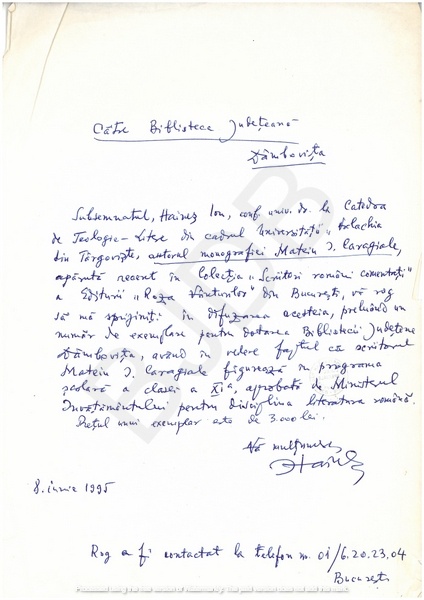 Către Biblioteca Județeană
Dâmbovița
Subsemnatul, Haineș Ion, conf. univ. dr. la Catedra
de Teologie-Litere din cadrul Universității „Valachia
din Târgoviște, autorul monografiei Mateiu I. Caragiale,
apărută recent în Colecția „Scriitori români comentați"
a Editurii „Roza Vânturilor" din București, vă rog
să mă sprijiniți în difuzarea acesteia, preluând un
număr de exemplare pentru dotarea Bibliotecii Județene
Dâmbovița, având în vedere faptul că scriitorul
Mateiu I. Caragiale figurează în programa
școlară a clasei a XIa, aprobată de Ministerul
Învățământului pentru disciplina literatura română.
Prețul unui exemplar este de 3.000 lei.
Vă mulțumesc,
8. iunie 1995
Rog a fi contactat la telefon nr. 01/6.20.23.04
București